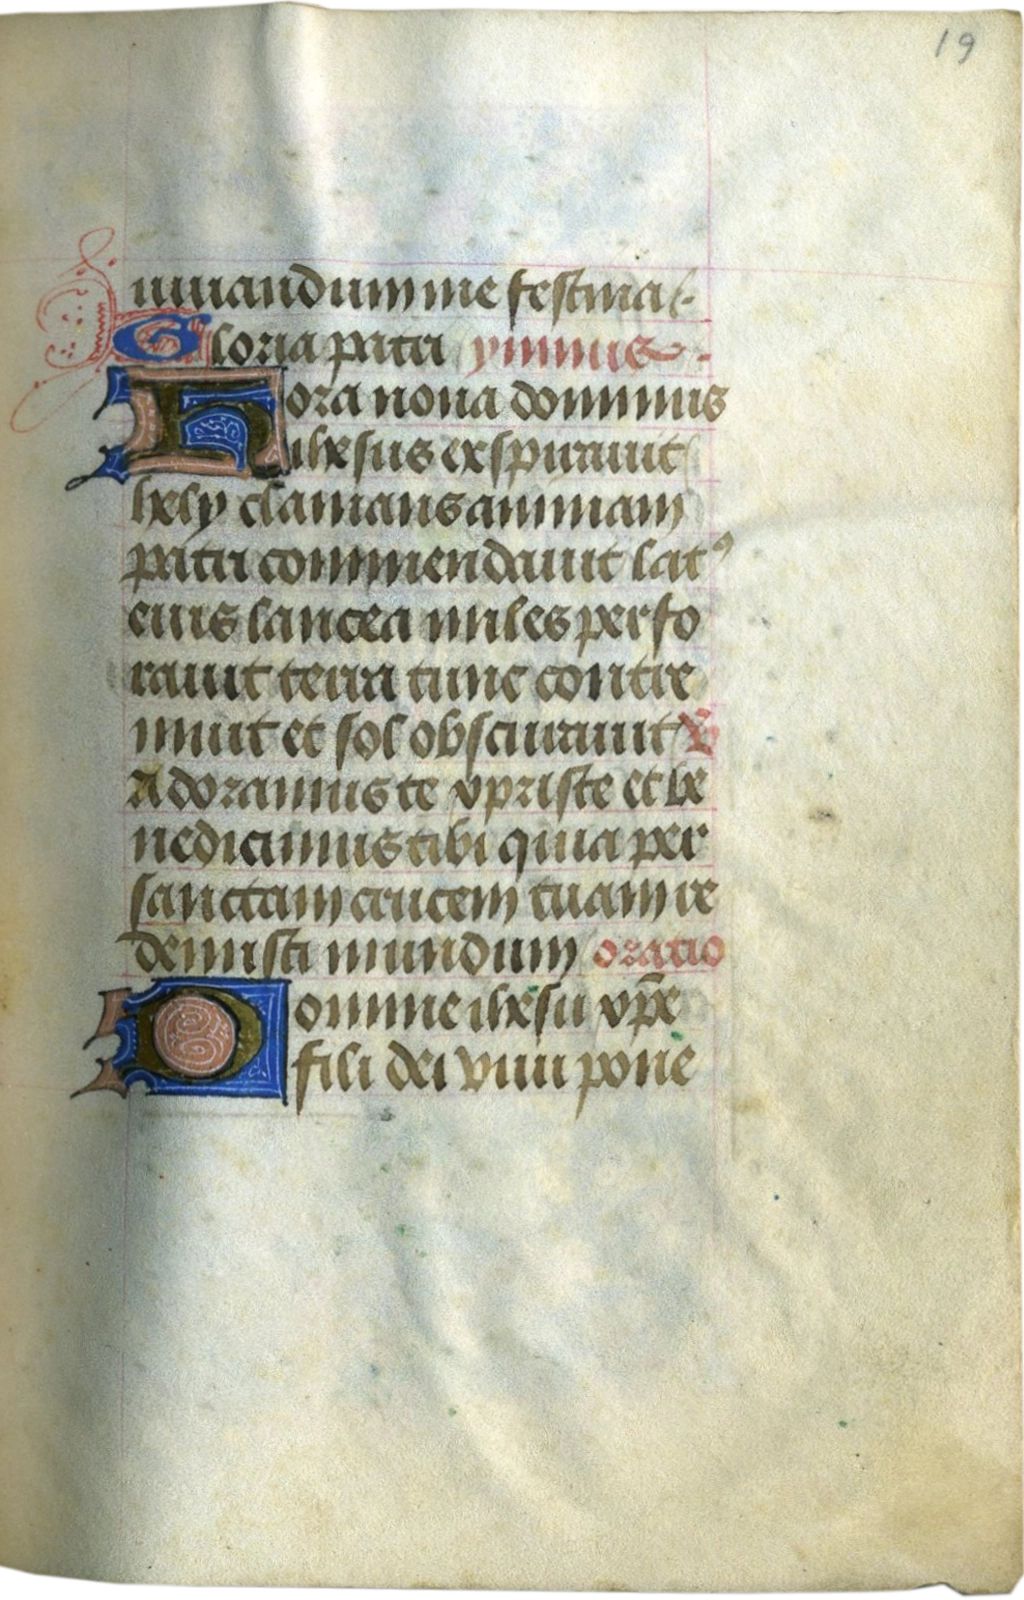 19
iuuandum me festina
Gloria patri ymnus
Hora nona dominus
ihesus exspirauit
hely clamans animam
patri commendauit latꝰ
eius lancea miles perfo
rauit terra tunc contre
muit et sol obscurauit ℣
Adoramus te xpriste et be
nedicimus tibi quia per
sanctam crucem tuam re
demisti mundum oratio
Domine ihesu xp̄e
fili dei viui pone